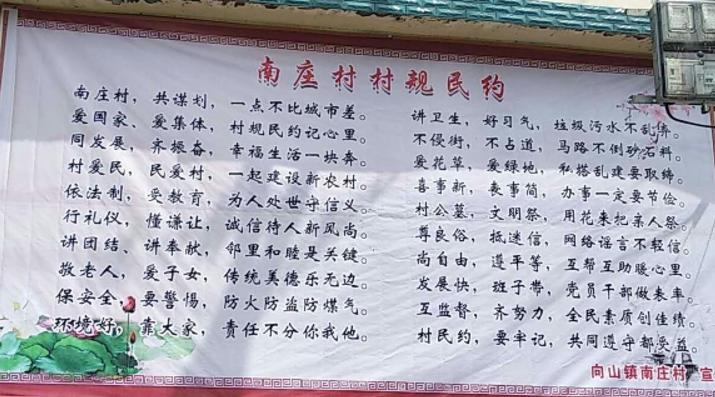 南庄村村规民约
南庄村，共谋划，一点不比城市差。
爱国家、爱集体，村规民约记心里。
同发展，齐振奋，幸福生活一块奔。
村爱民，民爱村，一起建设新农村。
依法制，受教育，为人处世守信义。
行礼仪，懂谦让，诚信待人新风尚。
讲团结、讲奉献，邻里和睦是关键。
敬老人，爱子女，传统美德乐无边。
保安全，要警惕，防火防盗防煤气。
环境好，靠大家，责任不分你我他。
讲卫生，好习气，垃圾污水不乱弃。
不侵街，不占道，马路不倒砂石料。
爱花草，爱绿地，私搭乱建要取缔。
喜事新，丧事简，办事一定要节俭。
村公墓，文明祭，用花来把亲人祭。
尊良俗，抵迷信，网络谣言不轻信。
尚自由，遵平等，互帮互助暖心里。
发展快，班子带，党员干部做表率。
互监督，齐努力，全民素质创佳绩。
村民约，要牢记，共同遵守都受益。
向山镇南庄村 宣